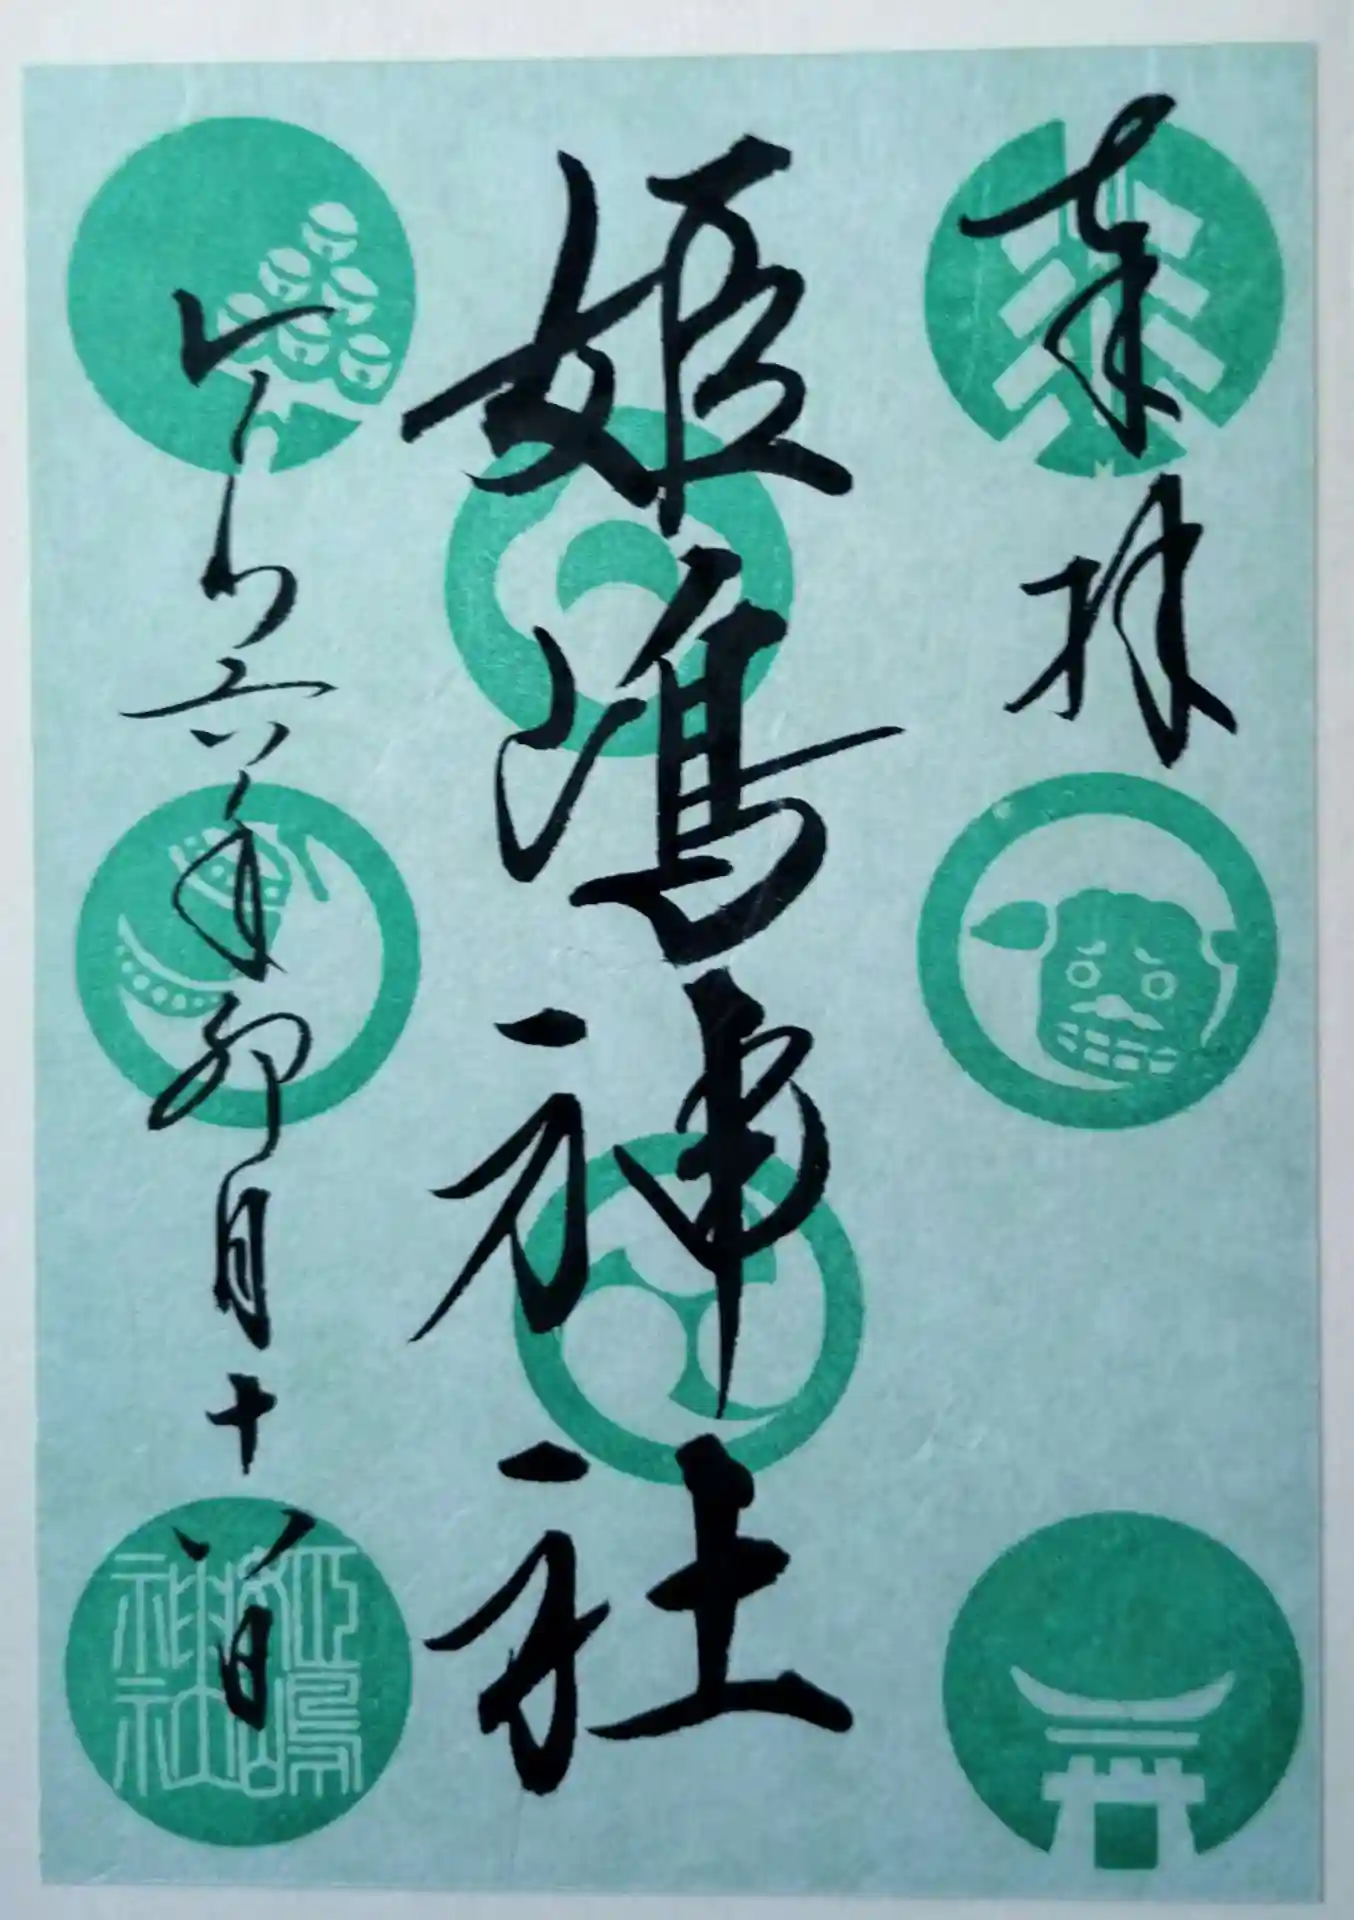 奉拝
姫嶋神社
令和六年卯月十八日
姫嶋
神社